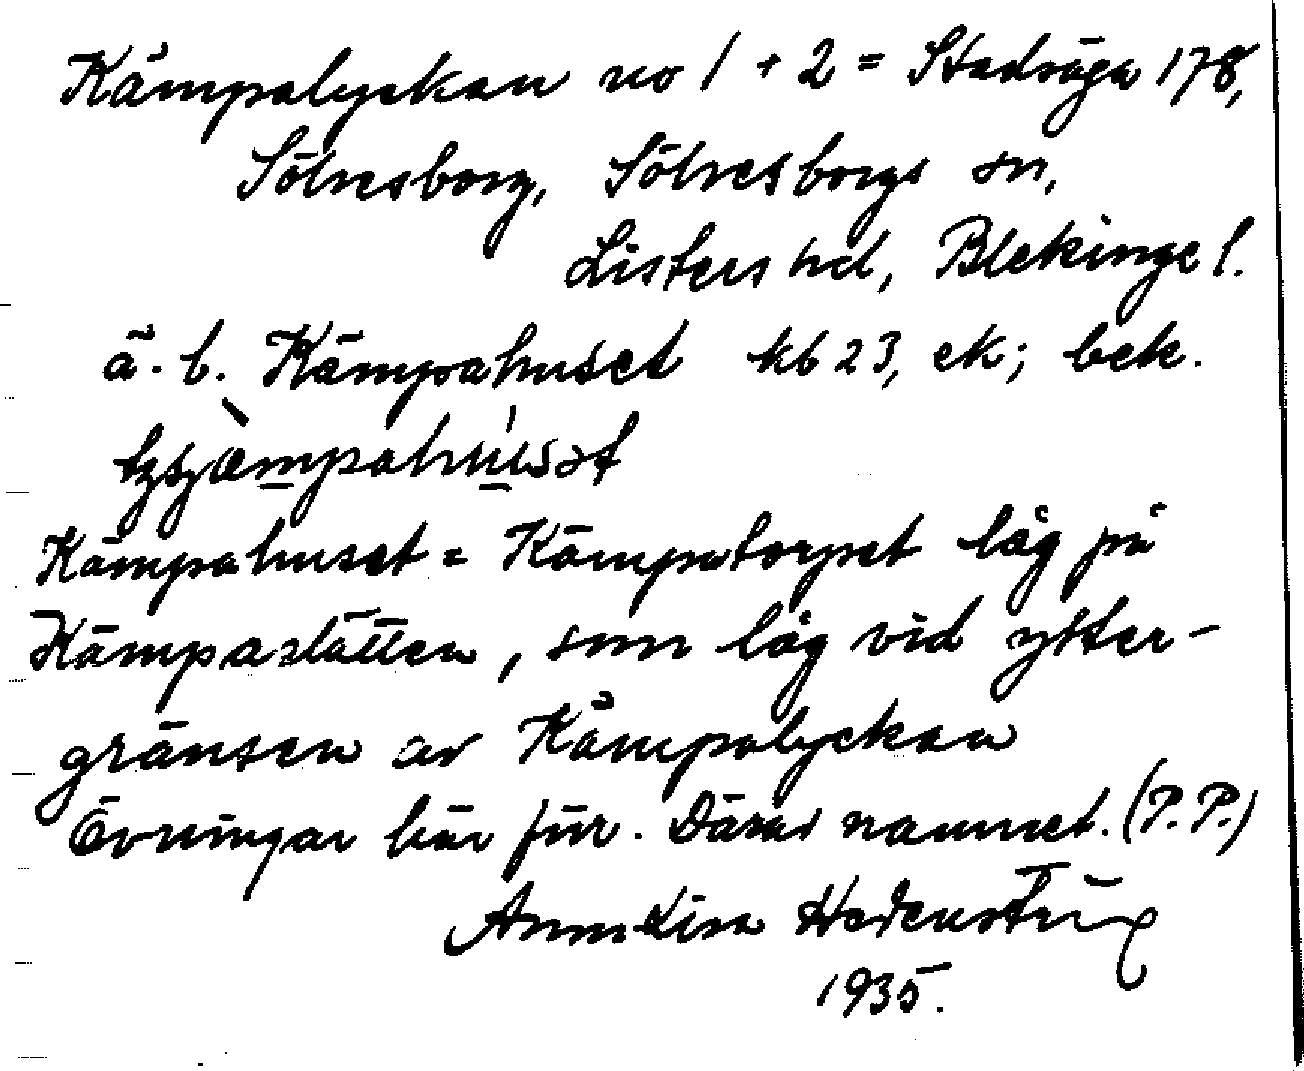 Kämpalyckan no 1 + 2 = Stadsäga 178,
Sölvesborg, Sölvesborgs sn,
Listers hd, Blekinge l.
ä. b. Kämpahuset kb 23, ek; bek.
Kämpahuset = Kämpatorpet låg på
Kämpaslätten, som låg vid ytter-
gränsen av Kämpalyckan
Övningar här förr. Därav namnet. (P. P.)
Ann-Lisa Hedenstierna
1935.